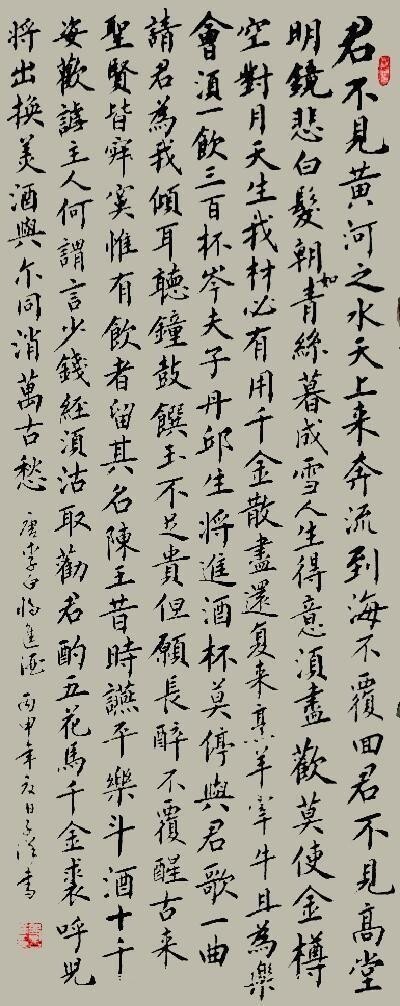 君不見黃河之水天上来奔流到海不覆回君不見高堂
明鏡悲白髮朝如青絲暮成雪人生得意須盡歡莫使金樽
空對月天生我材必有用千金散盡還复来烹羊宰牛且為樂
會須一飲三百杯岑夫子丹邱生將進酒杯莫停與君歌一曲
請君為我傾耳聽鐘鼓饌玉不足貴但願長醉不覆醒古来
聖賢皆寂寞惟有飲者留其名陳王昔時讌平樂斗酒十千
姿歡謔主人何謂言少錢經須沽取勸君酌五花馬千金裘呼兒
將出換美酒與尔同消萬古愁
唐李白將進酒丙申年夏日子書